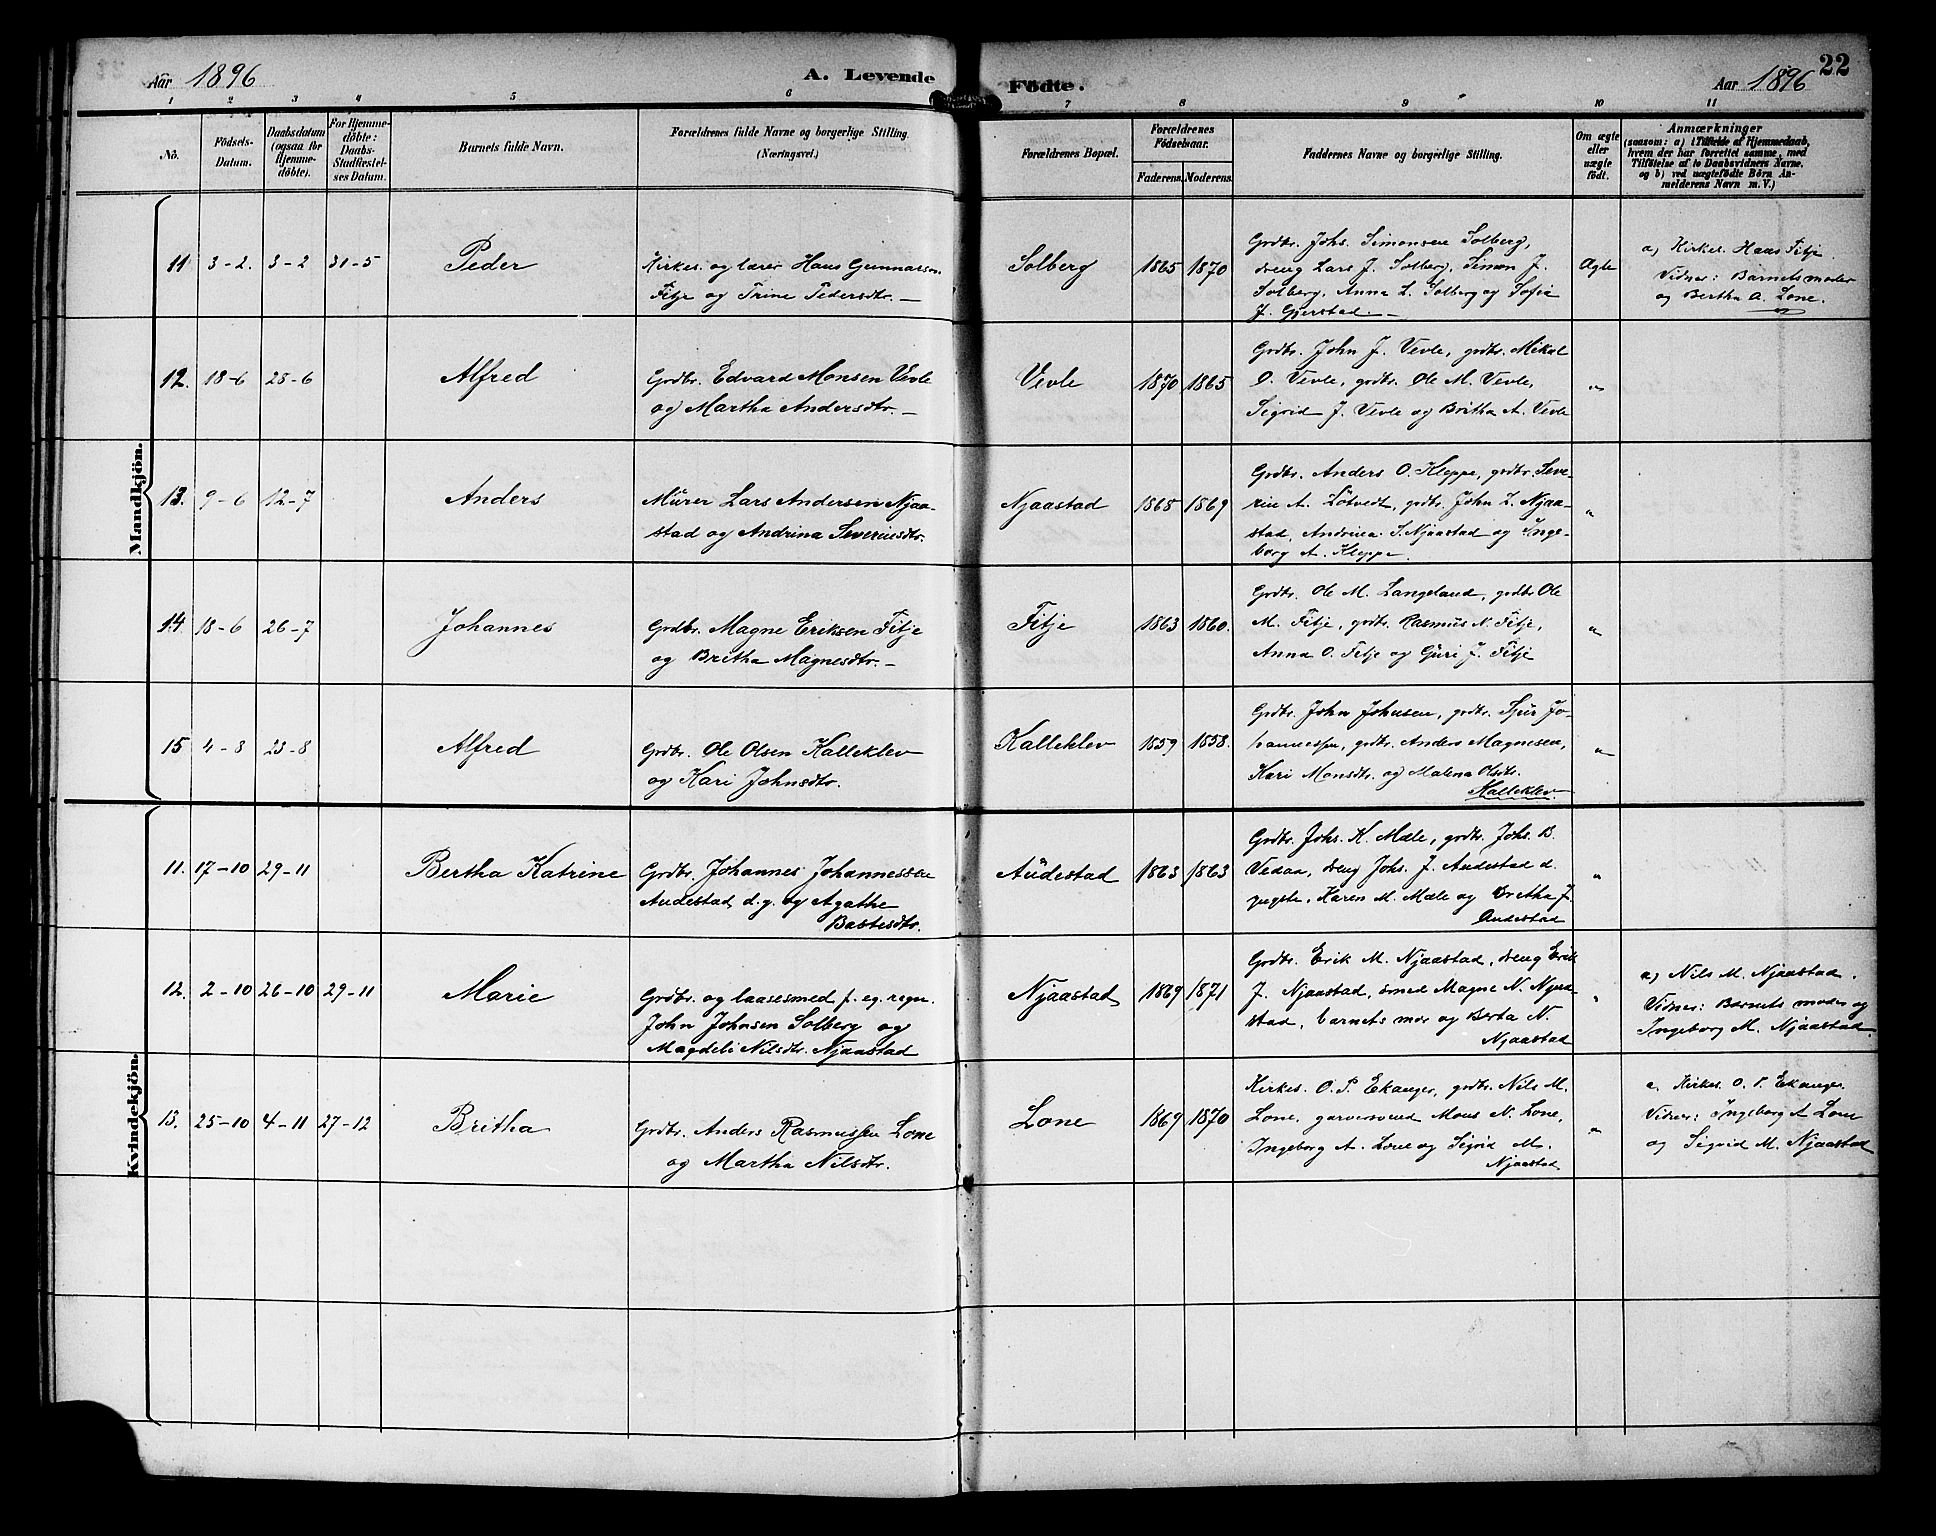 Aar 1896
A. Levende
Födte.
Aar 1896
22
1 2 3 4 5 6 7 8 9 10 11
No.
Födsels-
Datum.
Daabsdatum
(ogsaa for
Hjemme-
döbte).
For Hjemme-
döbte:
Daabs-
Stadfæstel-
ses Datum.
Barnets fulde Navn.
Forældrenes fulde Navne og borgerlige Stilling.
(Næringsvei.)
Forældrenes Bopæl.
Forældrenes
Födselsaar.
Faderens. Moderens.
Faddernes Navne og borgerlige Stilling.
Om ægte
eller
uægte
födt.
Anmærkninger
(saasom: a) i Tilfælde af Hjemmedaab,
hvem der har forrettet samme, med
Tilföielse af to Daabsvidners Navne,
og b) ved uægtefödte Börn An-
melderens Navn m. V.)
Mandkjön.
11 3-2. 3-2 31-5
Peder
Kirkes. og lærer Hans Gunnarson
Fitje og Trine Pedersdtr. —
Solberg
1865 1870
Grdbr. Johs. Simonsen Solberg,
dreng Lars J. Solberg, Simon J.
Solberg, Anna L. Solberg og Sofia
J. Gjerstad. —
Ægte
a) Kirkes. Hans Fitje
Vidner: Barnets moder
og Bertha O. Lone.
12. 18-6 28-6
Alfred
Grdbr. Edvard Monsen Vevle
og Martha Andersdtr. —
Vevle
1870 1865
Grdbr. John J. Vevle, grdbr. Mikal
O. Vevle, grdbr. Ole M. Vevle,
Sigrid J. Vevle og Britha A. Vevle
"
13. 9-6 12-7
Anders
Mürer Lars Andersen Njaa-
stad og Andrina Severinsdtr.
Njaastad
1865 1869
Grdbr. Anders O. Kleppe, grdbr. Seve-
rin A. Lötvedt, grdbr. John L. Njaa-
stad, Andrina S. Njaastad og Inge-
borg A. Kleppe.
"
14. 18-6 26-7
Johannes
Grdbr. Magne Eriksen Fitje
og Britha Magnesdtr. —
Fitje
1863 1860.
Grdbr. Ole M. Langeland, grdbr. Ole
M. Fitje, grdbr. Rasmus N. Fitje,
Anna O. Fitje og Guri J. Fitje
"
15 4-8 23-8
Alfred
Grdbr. Ole Olsen Kalleklev
og Kari Johnsdtr.
Kalleklev
1859 1858.
Grdbr. John Johnsen, grdbr. Sjur Jo-
hannessen, grdbr. Anders Magnesen,
Kari Monsdtr. og Malena Olsdtr.
Kalleklev.
"
Kvindekjön.
11. 17-10 29-11
Bertha Katrine
Grdbr. Johannes Johannessen
Audestad d. y. og Agathe
Bastesdtr.
Audestad
1863 1863
Grdbr. Johs. K. Mæle, grdbr. Johs. B.
Vedaa, dreng Johs. J. Audestad d.
yngste, Karen M. Mæle og Britha J.
Audestad
"
12. 2-10 26-10 29-11
Marie
Grdbr. og laasesmed f. eg. regn.
John Johnsen Solberg og
Magdeli Nilsdtr. Njaastad
Njaastad
1869 1871
Grdbr. Erik M. Njaastad, dreng Erik
J. Njaastad, smed Magne N. Njaa-
stad, barnets mor og Berta N.
Njaastad
"
a) Nils M. Njaastad.
Vidner: Barnets moder og
Ingeborg M. Njaastad.
13. 25-10 4-11 27-12
Britha
Grdbr. Anders Rasmussen Lone
og Martha Nilsdtr.
Lone
1869 1870
Kirkes. O. P. Ekanger, grdbr. Nils M.
Lone, garversvend Mons N. Lone,
Ingeborg A. Lone og Sigrid M.
Njaastad
"
a. Kirkes. O. P. Ekanger.
Vidner: Ingeborg A Lone
og Sigrid M. Njaastad